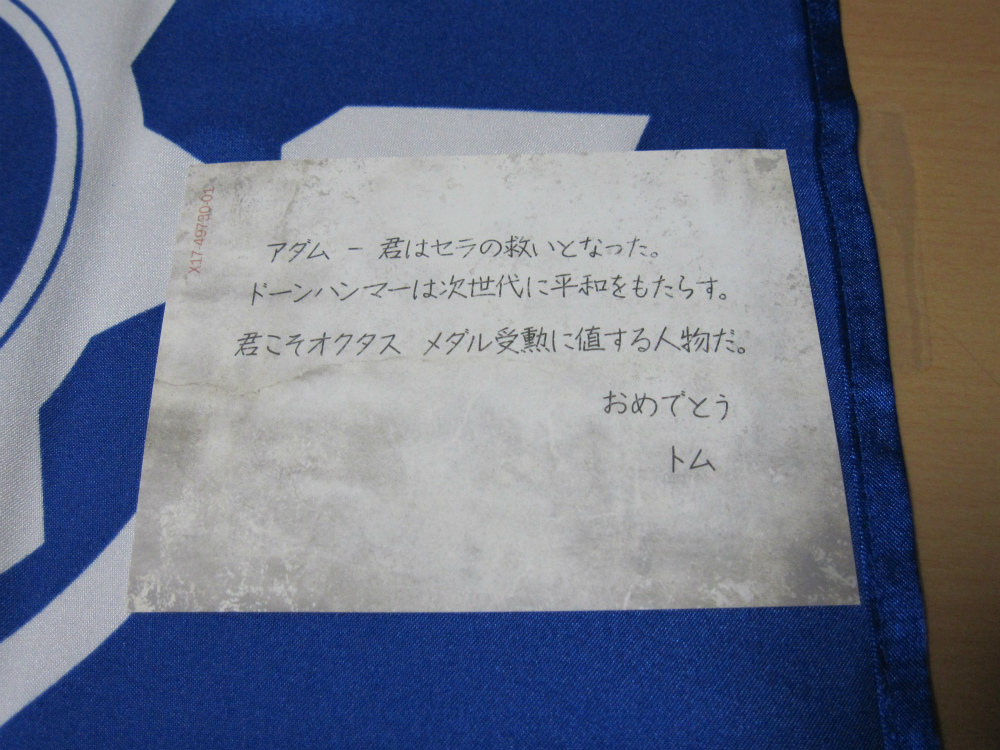 X17-49730-01
アダム － 君はセラの救いとなった。
ドーンハンマーは次世代に平和をもたらす。
君こそオクタス メダル受勲に値する人物だ。
おめでとう
トム